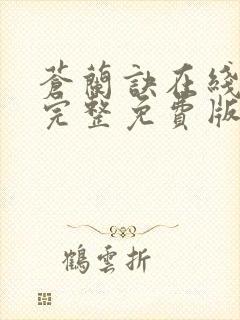 蒼蘭訣在綫
完整免費版
鶴雲折